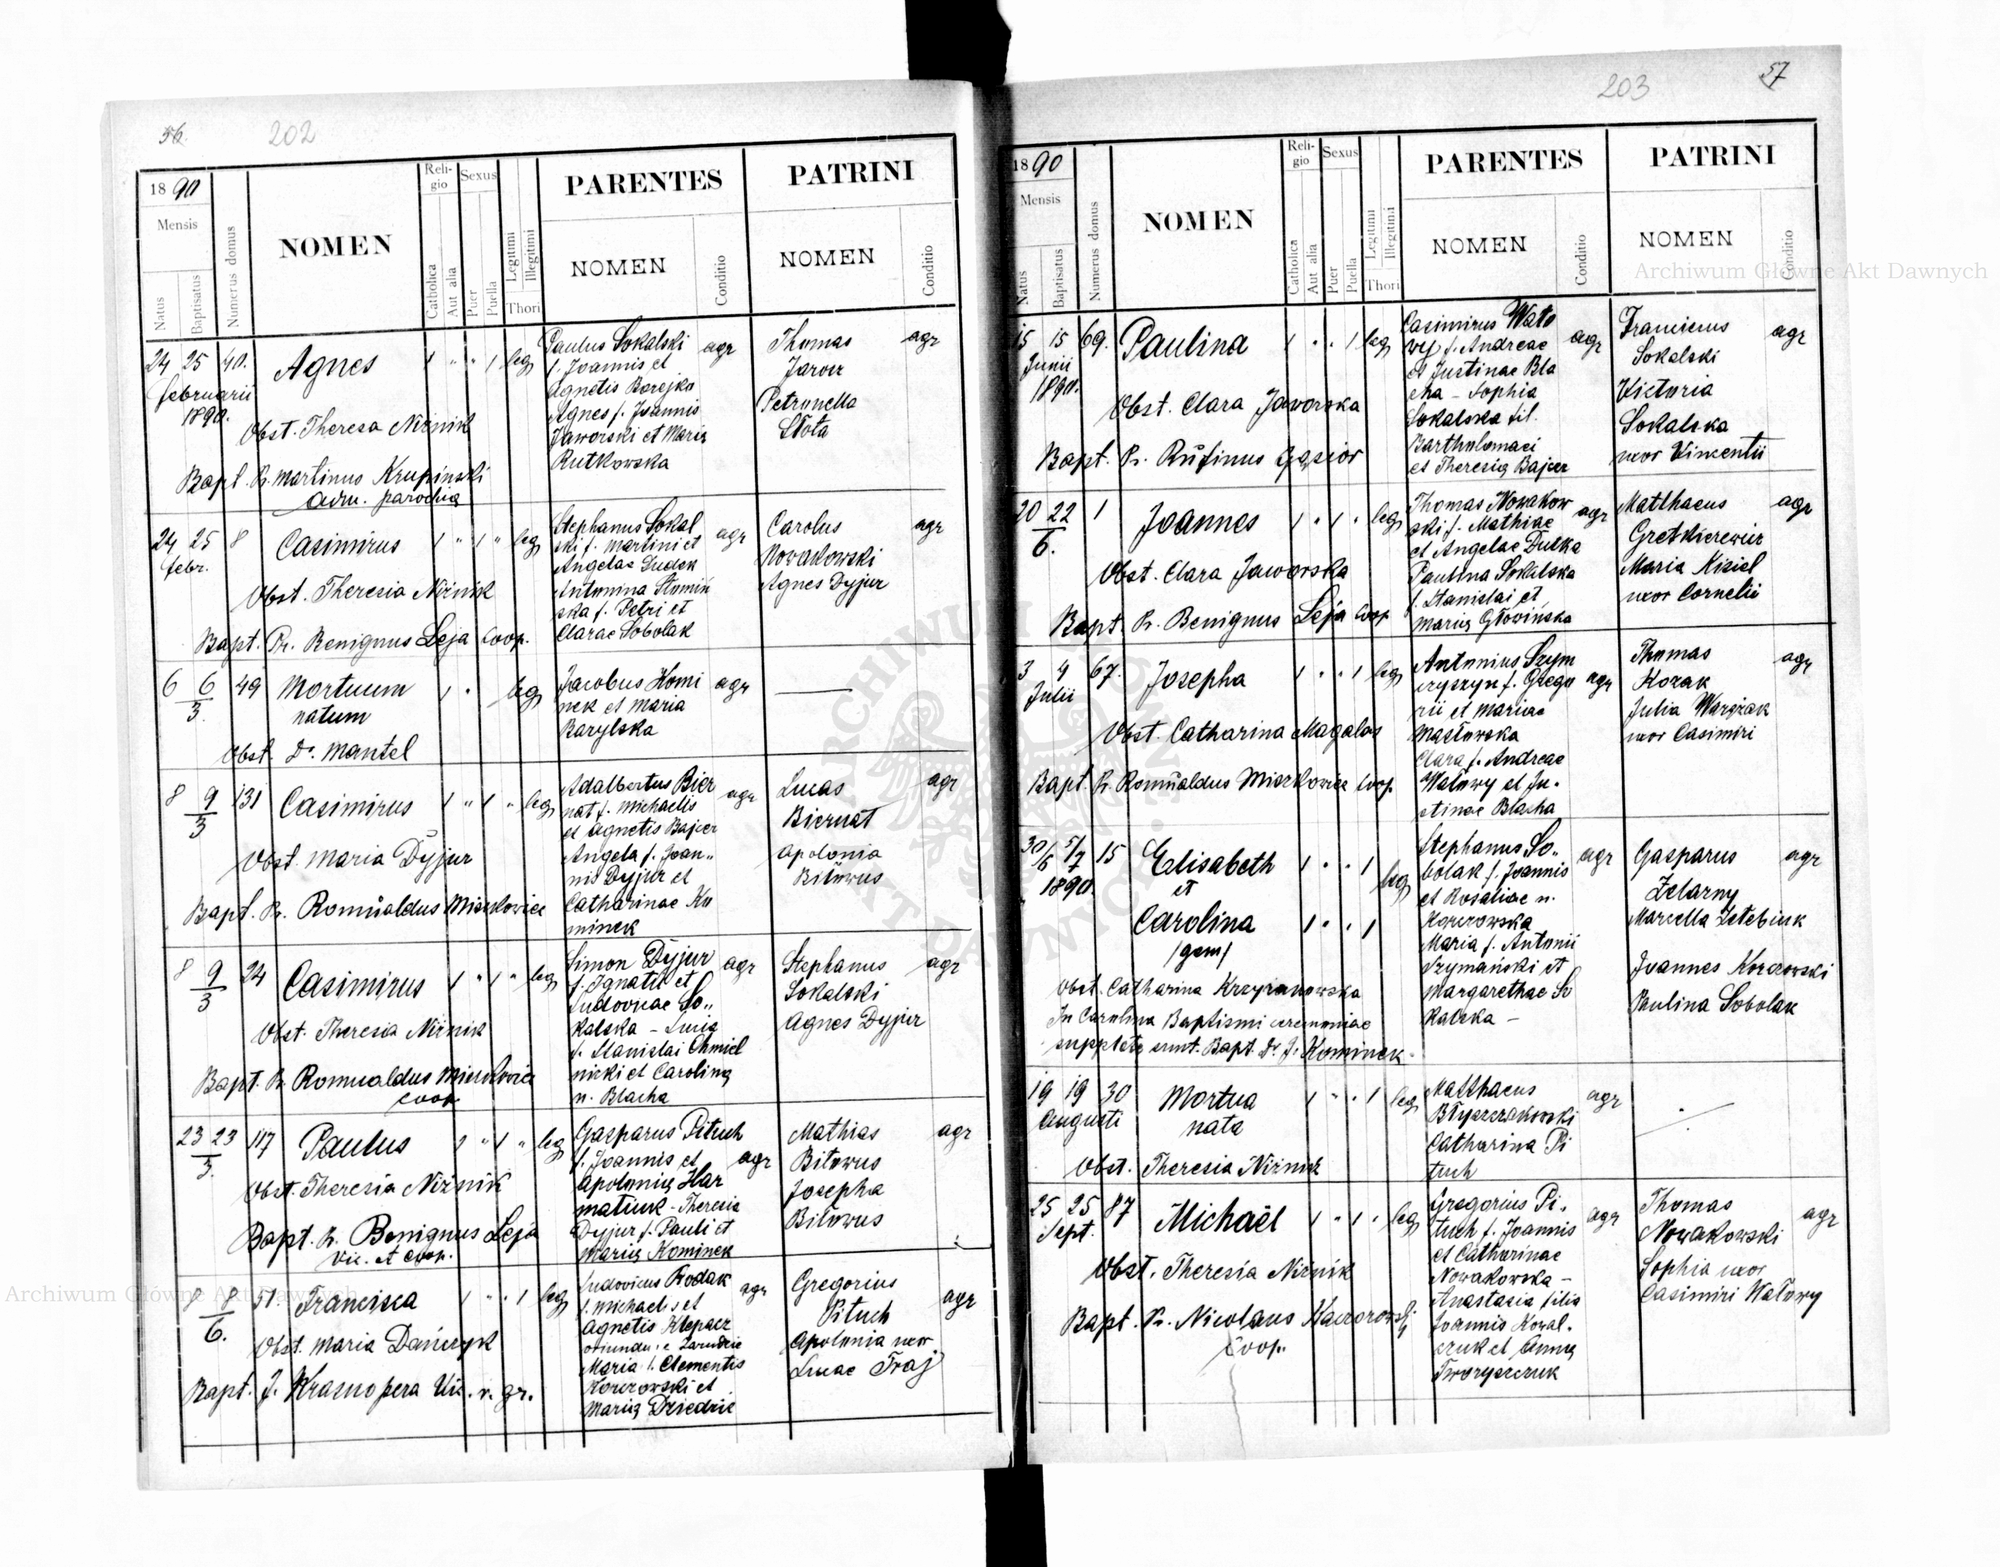 56.
202
1890
Mensis
Natus
Baptisatus
Numerus domus
NOMEN
Religio
Catholica
Aut alia
Sexus
Puer
Puella
Legitimi
Illegitimi
Thori
PARENTES
NOMEN
Conditio
PATRINI
NOMEN
Conditio
24 25 40. Agnes 1 " " 1 leg
Februarii
1890.
Obst. Theresa Niźnik
Bapt. Pr. Martinus Krupiński
adm. parochia
Paulus Sokalski agr
f. Joannis et
Agnetis Barejko
Agnes f. Joannis
Jaworski et Maria
Rutkowska
Thomas agr
Jarosz
Petronella
Słota
24 25 8 Casimirus 1 " 1 " leg
febr.
Obst. Theresia Niźnik
Bapt. Pr. Benignus Leja Coop.
Stephanus Sokal agr
ski f. Martini et
Angelae Dudek
Antonina Słomiń
ska f. Petri et
Clarae Sobolak
Carolus agr
Nowakowski
Agnes Dyjur
6 6/3. 49 Mortuum 1 " leg
natum
Obst. Dr. Mantel
Jacobus Homi agr
nek et Maria
Barylska
8 9/3 131 Casimirus 1 " 1 " leg
Obst. Maria Dyjur
Bapt. Pr. Romualdus Miszkowicz
Adalbertus Bier agr
nat f. Michaelis
et Agnetis Bajcer
Angela f. Joan"
nis Dyjur et
Catharinae Ko
minek
Lucas agr
Biernat
Apolonia
Bitowus
8 9/3 24 Casimirus 1 " 1 " leg
Obst. Theresia Niźnik
Bapt. Pr. Romualdus Miszkowicz
coop.
Simon Dyjur agr
f. Ignatii et
Ludovicae So"
kalska - Lucia
f. Stanislai Chmiel
nicki et Carolina
n. Blacha
Stephanus agr
Sokalski
Agnes Dyjur
23 23/3. 117 Paulus 1 " 1 " leg
Obst. Theresia Niźnik
Bapt. Pr. Benignus Leja
Vic. et Coop.
Gasparus Pituch
f. Joannis et agr
Apolonia Har
matiuk - Theresia
Dyjur f. Pauli et
Maria Kominek
Mathias agr
Bitowus
Josepha
Bitowus
8 8/6. 51. Francisca 1 " " 1 leg
Obst. Maria Dańczyk
Bapt. J. Krasnopera Vic. r. gr.
Ludovicus Rodak agr
f. Michaelis et
Agnetis Klepacz
Maria f. Clementis
Korczowski et
Maria Dziedzic
Gregorius agr
Pituch
Apolonia uxor
Lucae Fraj
203
57
1890
Mensis
Natus
Baptisatus
Numerus domus
NOMEN
Religio
Catholica
Aut alia
Sexus
Puer
Puella
Legitimi
Illegitimi
Thori
PARENTES
NOMEN
Conditio
PATRINI
NOMEN
Conditio
15 15 69. Paulina 1 " " 1 leg
Junii
1890.
Obst. Clara Jaworska
Bapt. Pr. Rufinus Gąsior
Casimirus Wało
wy f. Andreae agr
et Justinae Bla
cha - Sophia
Sokalska fil.
Bartholomaei
et Theresia Bajcer
Franciscus agr
Sokalski
Victoria
Sokalska
uxor Vincentii
20 22/6. 1 Joannes 1 " 1 " leg
Obst. Clara Jaworska
Bapt. Pr. Benignus Leja Coop
Thomas Nowakow agr
ski f. Mathiae
et Angelae Dutka
Paulina Sokalska
f. Stanislai et
Maria Głowińska
Matthaeus agr
Gretkierewicz
Maria Kisiel
uxor Cornelii
3 4 67. Josepha 1 " " 1 leg
Julii
Obst. Catharina Magalas
Bapt. Pr. Romualdus Miszkowicz Coop.
Antonius Szym agr
czyszyn f. Grego
rii et Mariae
Masłowska
Clara f. Andreae
Wałowy et Ju"
stinae Blacha
Thomas agr
Kozak
Julia Wargzak
uxor Casimiri
30/6 5/7 15 Elisabeth 1 " " 1 leg
1890.
et
Carolina 1 " " 1
/gem/
Obst. Catharina Krzyżanowska
In Carolina Baptismi ceremoniae
suppletae sunt. Bapt. Dr. J. Kominek
Stephanus So" agr
bolak f. Joannis
et Rosaliae n.
Korczowska
Maria f. Antonii
Szymański et
Margarethae So
kalska -
Gasparus agr
Żelarny
Marcella Zatebiuk
Joannes Korczowski
Paulina Sobolak
19 19 30 Mortua 1 " " 1 leg
Augusti nata
Obst. Theresia Niźnik
Matthaeus agr
Błyszczakowski
Catharina Pi
tuch
25 25 87 Michaël 1 " 1 " leg
Sept.
Obst. Theresia Niźnik
Bapt. Pr. Nicolaus Kaczorowski
Coop.
Gregorius Pi" agr
tuch f. Joannis
et Catharinae
Nowakowska -
Anastasia filia
Joannis Kowal"
czuk et Anna
Tworyszczuk
Thomas agr
Nowakowski
Sophia uxor
Casimiri Wałowy
Archiwum Główne Akt Dawnych
Archiwum Główne Akt Dawnych
ARCHIWUM GŁÓWNE AKT DAWNYCH